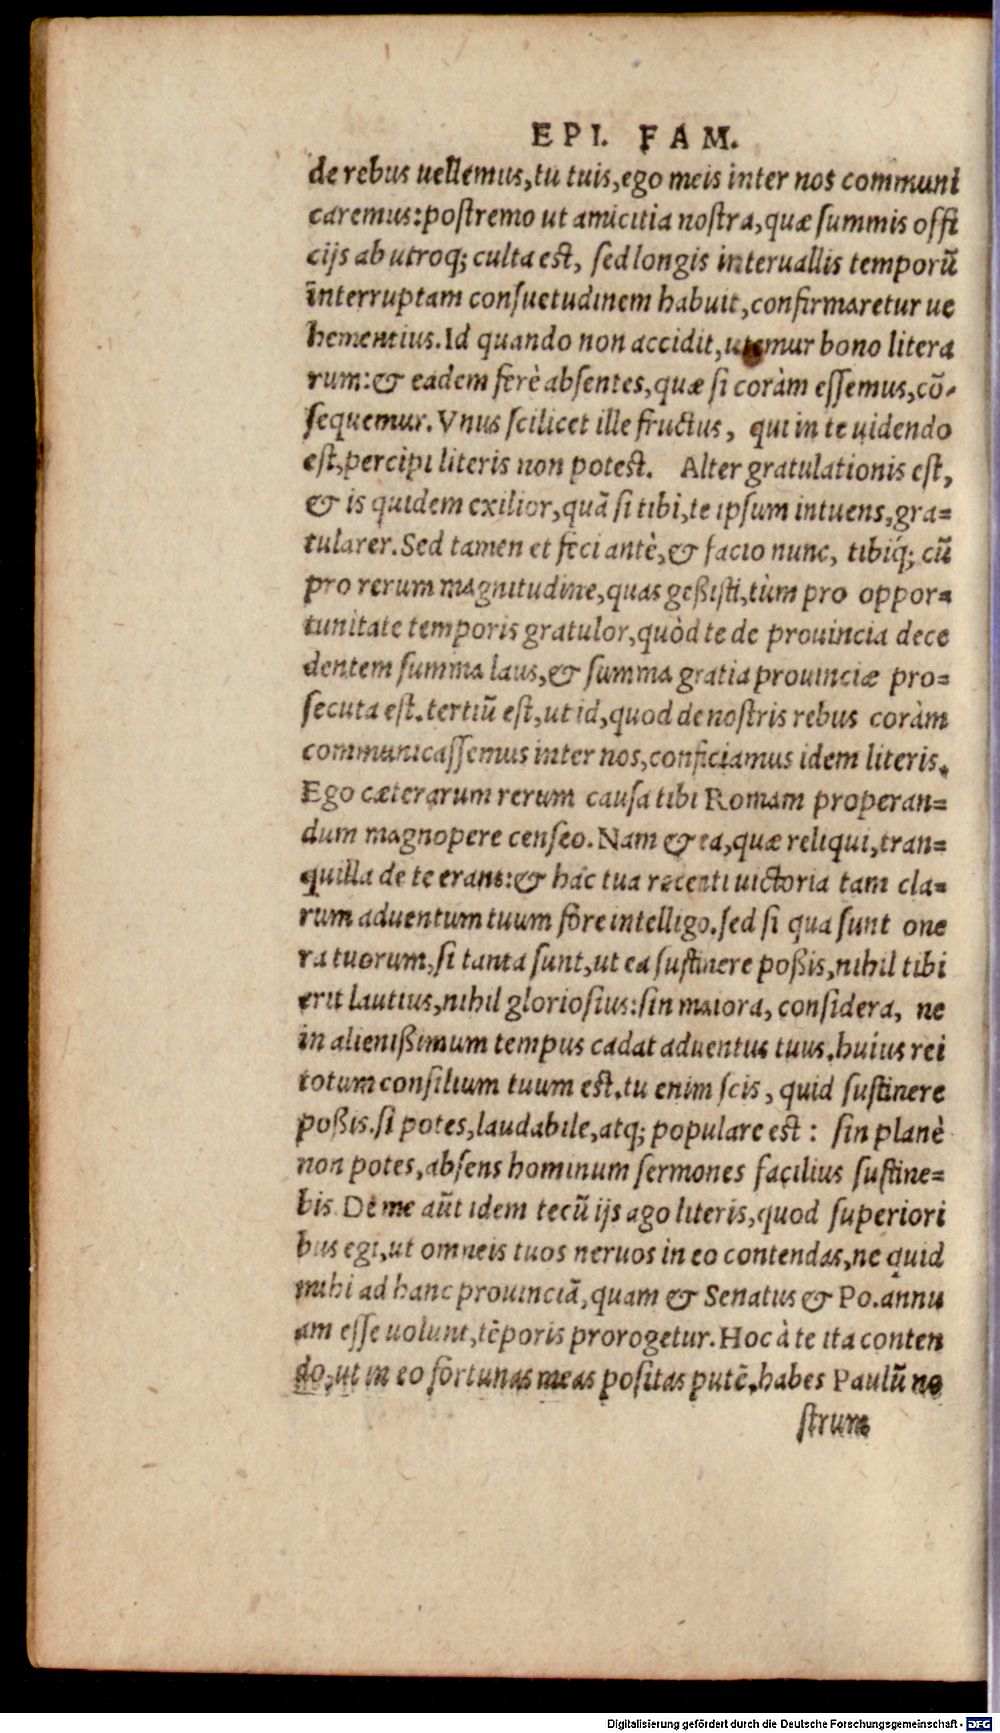 EPI. FAM.
de rebus uellemus, tu tuis, ego meis inter nos communi
caremus: postremo ut amicitia nostra, quæ summis offi
cijs ab utroq; culta est, sed longis interuallis temporū
interruptam consuetudinem habuit, confirmaretur ue
hementius. Id quando non accidit, utemur bono litera
rum: & eadem ferè absentes, quæ si coràm essemus, cō-
sequemur. Vnus scilicet ille fructus, qui in te uidendo
est, percipi literis non potest. Alter gratulationis est,
& is quidem exilior, quā si tibi, te ipsum intuens, gra=
tularer. Sed tamen et feci antè, & facio nunc, tibiq́; cū
pro rerum magnitudine, quas geßisti, tùm pro oppor=
tunitate temporis gratulor, quòd te de prouincia dece
dentem summa laus, & summa gratia prouinciæ pro=
secuta est. tertiū est, ut id, quod de nostris rebus coràm
communicassemus inter nos, conficiamus idem literis.
Ego cæterarum rerum causa tibi Romam properan=
dum magnopere censeo. Nam & ea, quæ reliqui, tran=
quilla de te erant: & hac tua recenti uictoria tam cla=
rum aduentum tuum fore intelligo. sed si qua sunt one
ra tuorum, si tanta sunt, ut ea sustinere poßis, nihil tibi
erit lautius, nihil gloriosius: sin maiora, considera, ne
in alienißimum tempus cadat aduentus tuus. huius rei
totum consilium tuum est. tu enim scis, quid sustinere
poßis. si potes, laudabile, atq; populare est: sin planè
non potes, absens hominum sermones facilius sustine=
bis. De me aūt idem tecū ijs ago literis, quod superiori
bus egi, ut omneis tuos neruos in eo contendas, ne quid
mihi ad hanc prouinciā, quam & Senatus & Po. annu
am esse uolunt, tēporis prorogetur. Hoc à te ita conten
do, ut in eo fortunas meas positas putē. habes Paulū no
strum
Digitalisierung gefördert durch die Deutsche Forschungsgemeinschaft - DFG